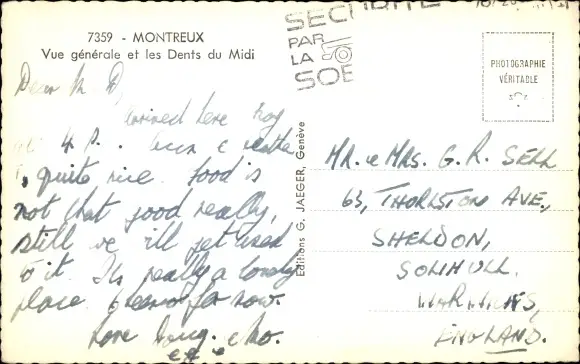 7359 - MONTREUX
Vue générale et les Dents du Midi
SÉCURITÉ
PAR
LA
PHOTOGRAPHIE
VÉRITABLE
Editions G. JAEGER, Genève
Dear M D
arrived here
at 4 P.
quite nice. food is
not that good really,
still we'ill get used
to it. Its really a lovely
place. Cheerio for now.
Love
MR. & MRS. G. R. SELL
63, THORNSTON AVE.,
SHELDON,
SOLIHULL.
WARWICKS,
ENGLAND.